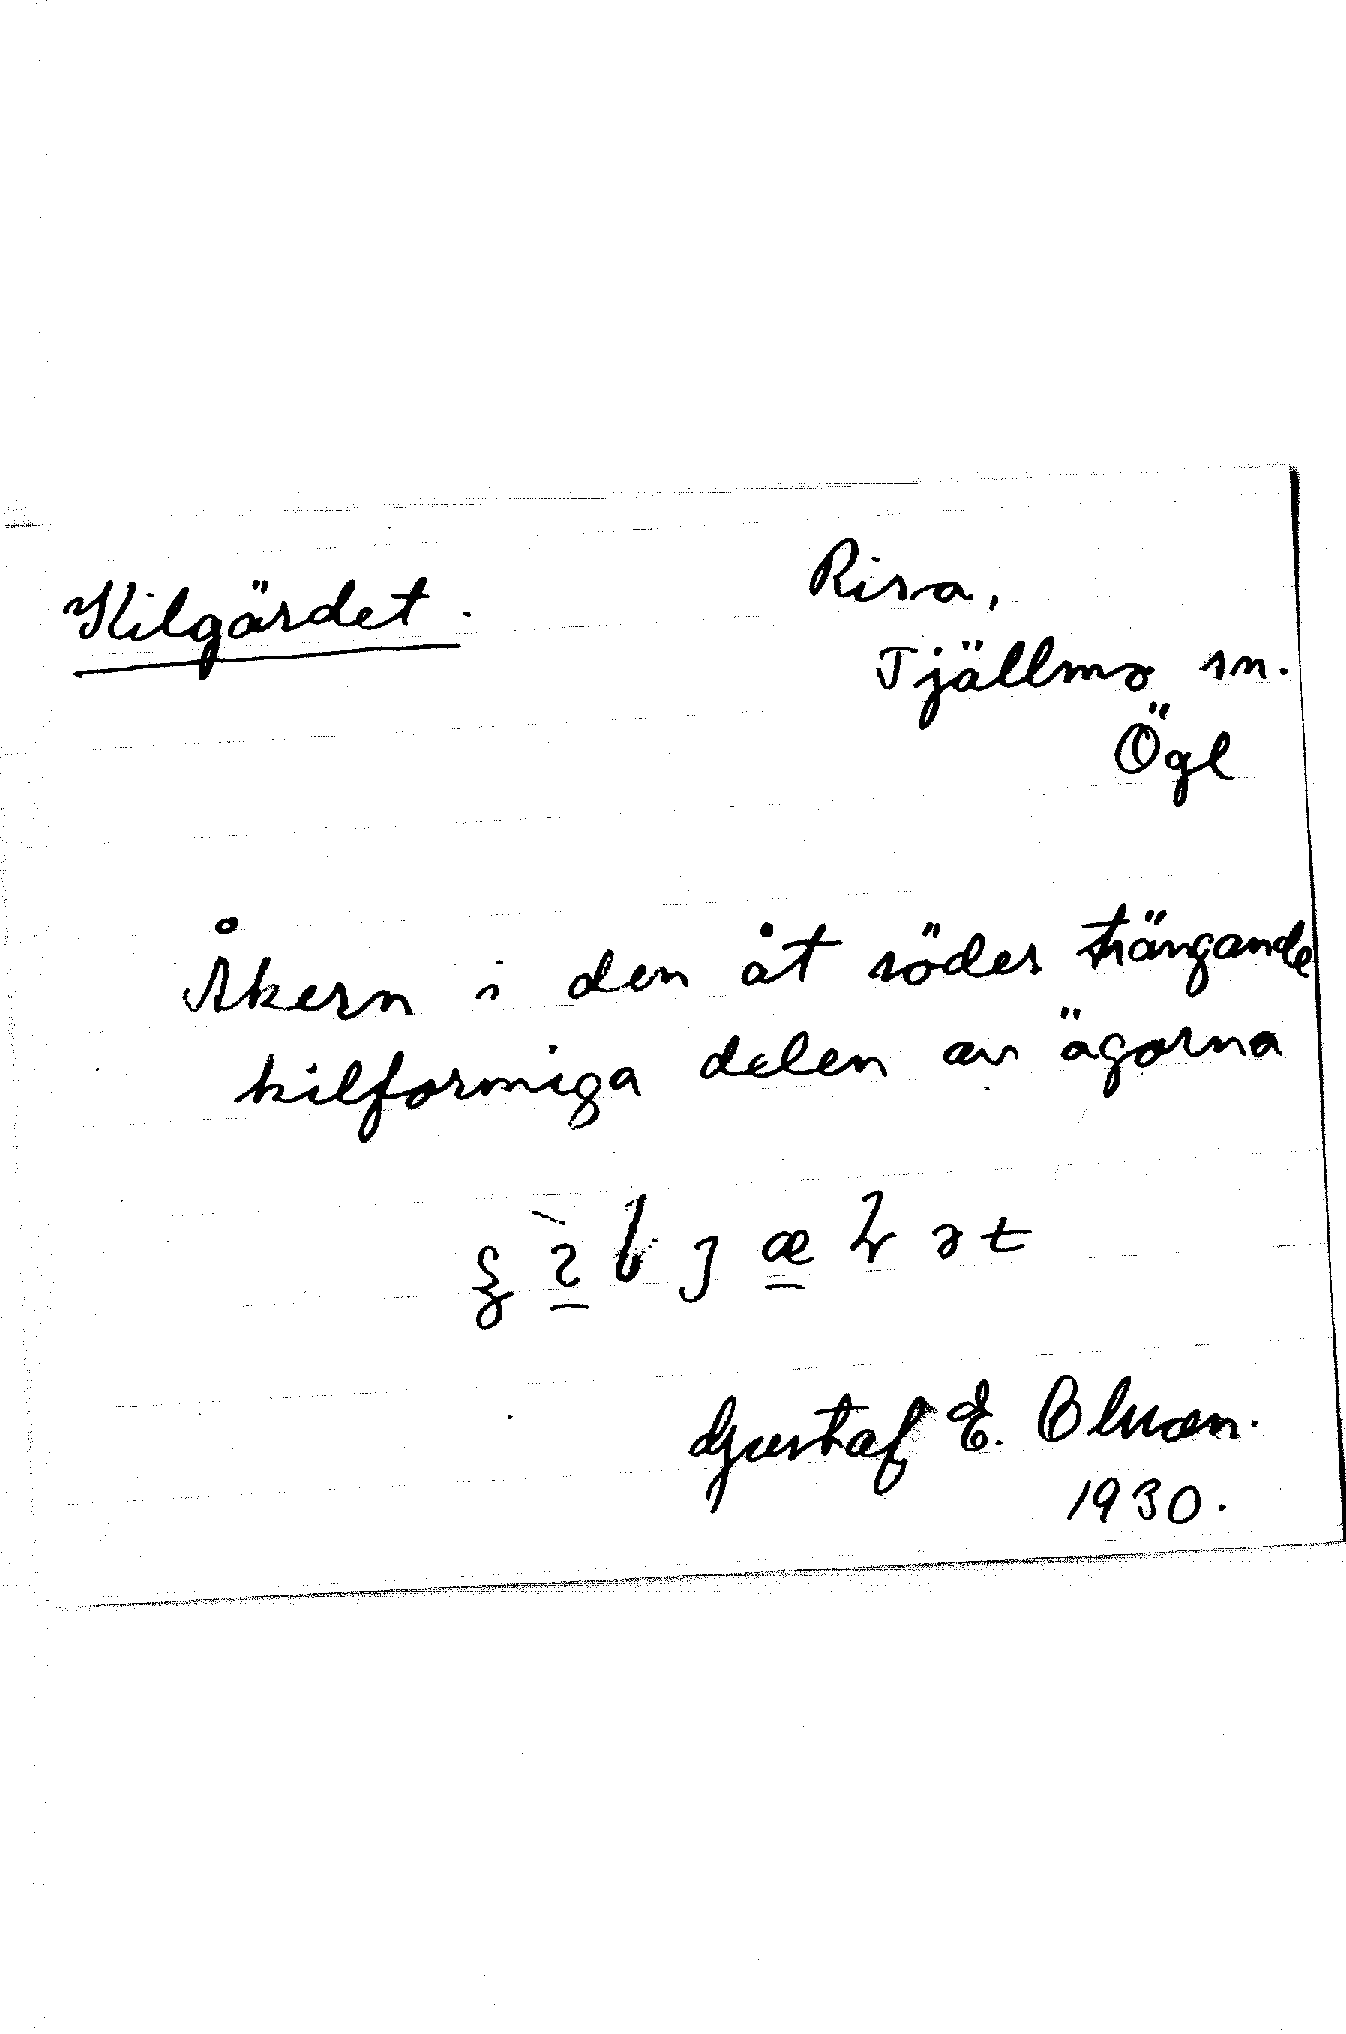 Kilgärdet.
Risa,
Tjällmo sn.
Ögl
Åkern i den åt söder trängande
kilformiga delen av ägorna
Gustaf E. Olsson.
1930.